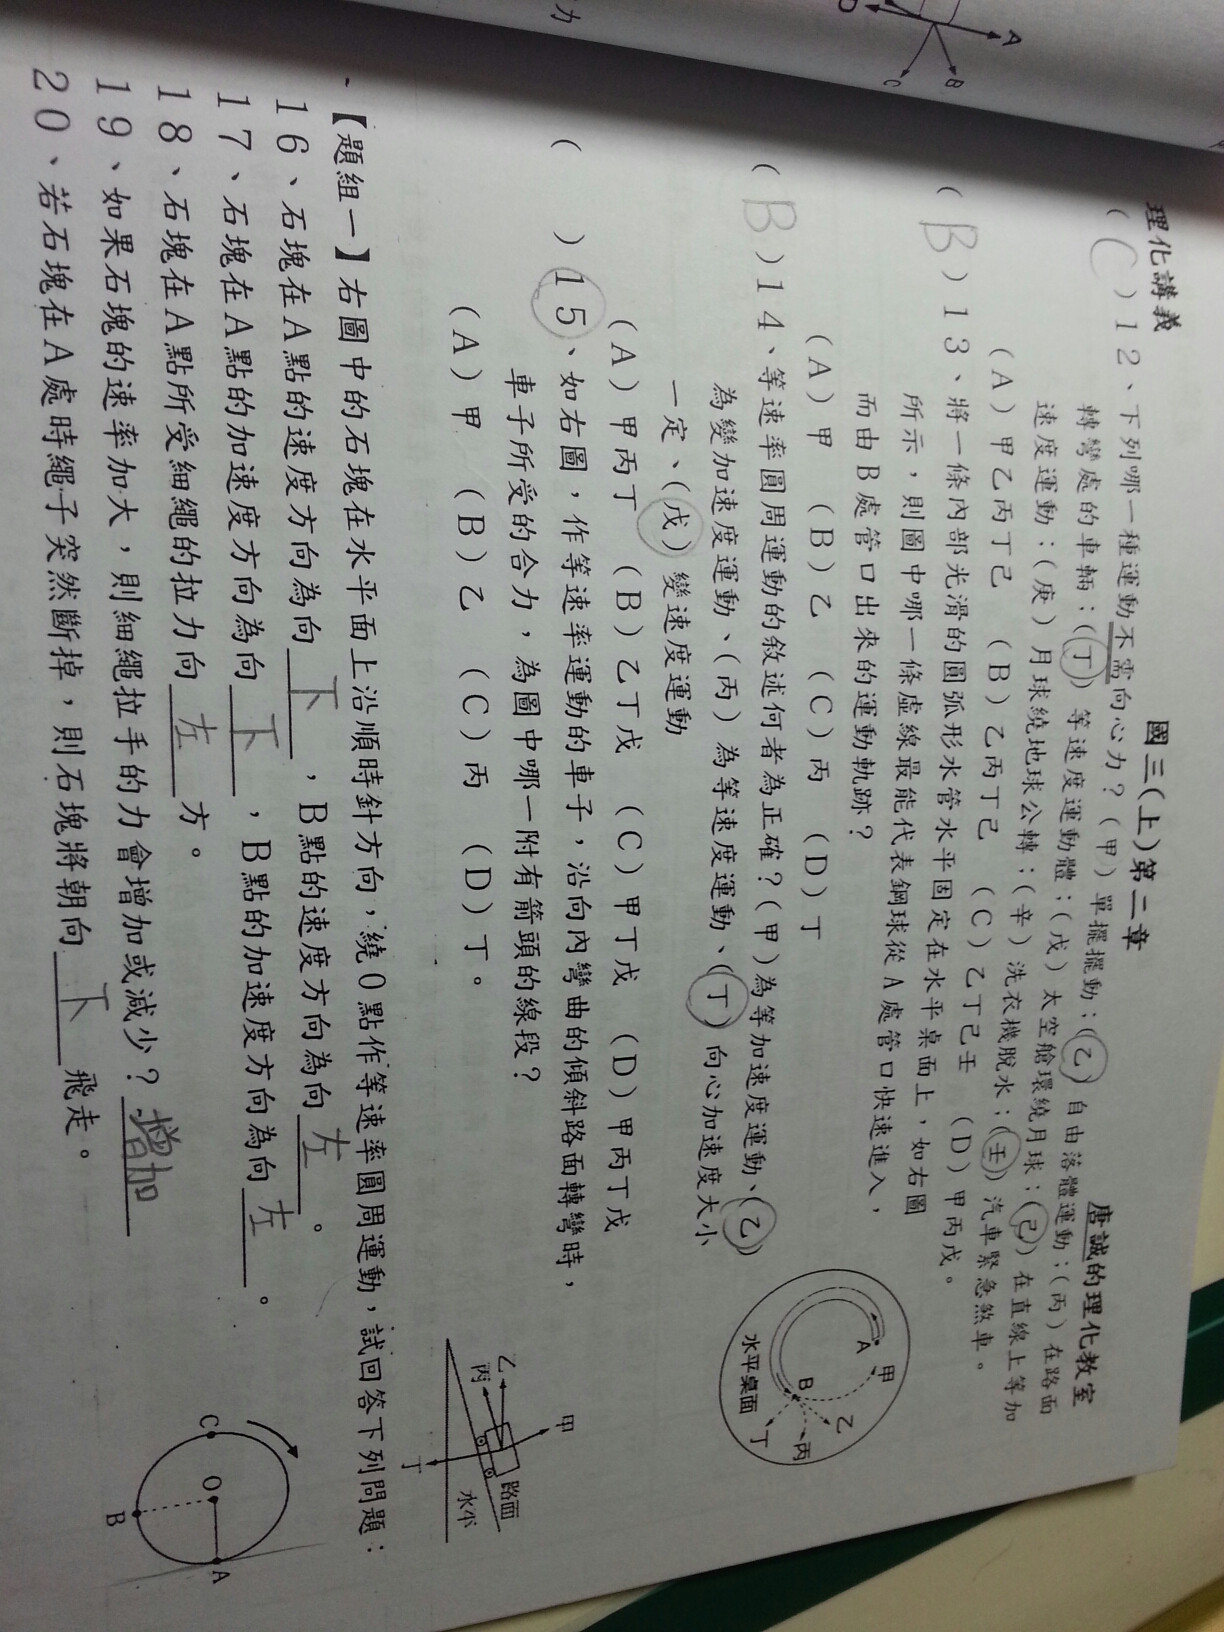 理化講義
國三(上)第二章
唐誠的理化教室
( C )12、下列哪一種運動不需向心力?(甲)單擺擺動;(乙)自由落體運動;(丙)在路面
轉彎處的車輛;(丁)等速度運動體;(戊)太空艙環繞月球;(己)在直線上等加
速度運動;(庚)月球繞地球公轉;(辛)洗衣機脫水;(壬)汽車緊急煞車。
(A)甲乙丙丁己 (B)乙丙丁己 (C)乙丁己壬 (D)甲丙戊。
( B )13、將一條內部光滑的圓弧形水管水平固定在水平桌面上,如右圖
所示,則圖中哪一條虛線最能代表鋼球從A處管口快速進入,
而由B處管口出來的運動軌跡?
(A)甲 (B)乙 (C)丙 (D)丁
( B )14、等速率圓周運動的敘述何者為正確?(甲)為等加速度運動、(乙)
為變加速度運動、(丙)為等速度運動、(丁)向心加速度大小
一定、(戊)變速度運動
(A)甲丙丁 (B)乙丁戊 (C)甲丁戊 (D)甲丙丁戊
( )15、如右圖,作等速率運動的車子,沿向內彎曲的傾斜路面轉彎時,
車子所受的合力,為圖中哪一附有箭頭的線段?
(A)甲 (B)乙 (C)丙 (D)丁。
、【題組一】右圖中的石塊在水平面上沿順時針方向,繞O點作等速率圓周運動,試回答下列問題:
16、石塊在A點的速度方向為向下,B點的速度方向為向左。
17、石塊在A點的加速度方向為向下,B點的加速度方向為向左。
18、石塊在A點所受細繩的拉力向左方。
19、如果石塊的速率加大,則細繩拉手的力會增加或減少?增加
20、若石塊在A處時繩子突然斷掉,則石塊將朝向下飛走。
A
甲
B
乙
丙
丁
水平桌面
甲
乙
丙
丁
路面
水平
C
O
A
B
力
A
B
C
D